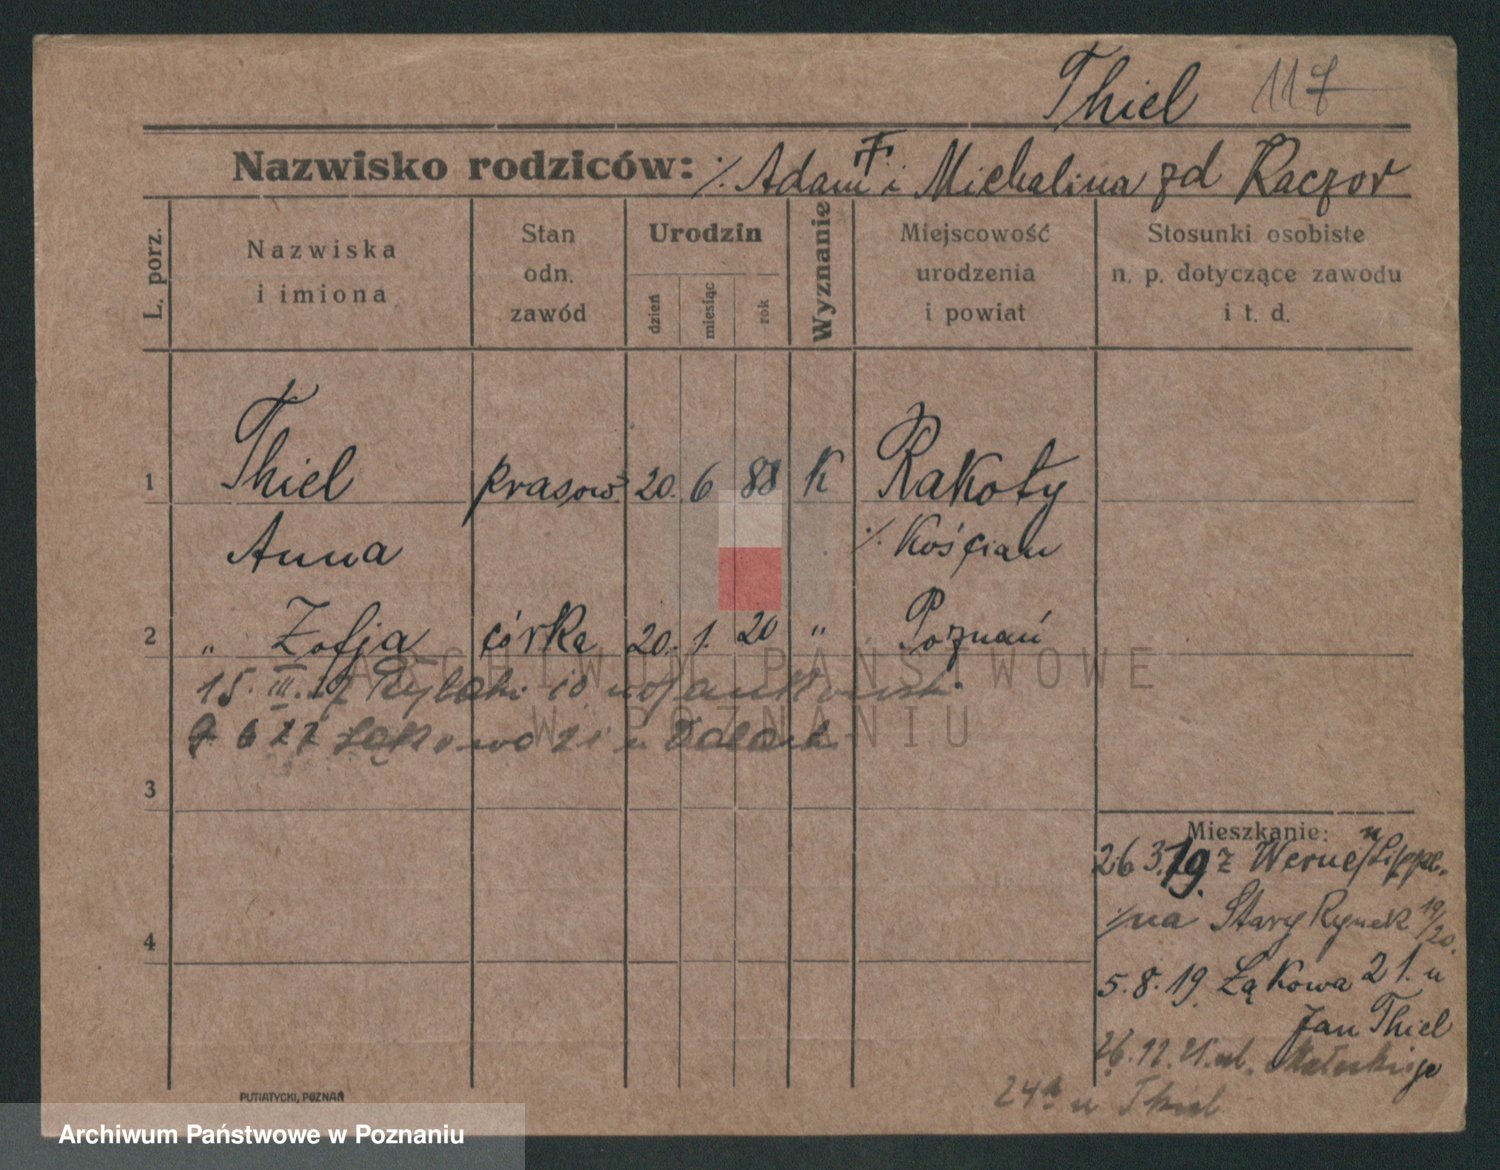 Thiel 117
Nazwisko rodziców: ·/. Adam † i Michalina zd Kaczor
L. porz.
Nazwiska i imiona
Stan odn. zawód
Urodzin
dzień
miesiąc
rok
Wyznanie
Miejscowość urodzenia i powiat
Stosunki osobiste n. p. dotyczące zawodu i t. d.
1 Thiel prasow 20. 6 88 K Rakoty
Anna ·/. Kościan
2 " Zofja córka 20. 1. 20 " Poznań
15. III. 22 Rybaki 10 u
6 22 Łąkowa 21 u
3
4
Mieszkanie:
26 3. 19. z Werne n/Lippe.
·/. na Stary Rynek 19/20.
5. 8. 19. Łąkowa 21. u
Jan Thiel
26. 12. 21. ul.
24a u Thiel
PUTIATYCKI, POZNAŃ
ARCHIWUM PAŃSTWOWE
W POZNANIU
Archiwum Państwowe w Poznaniu